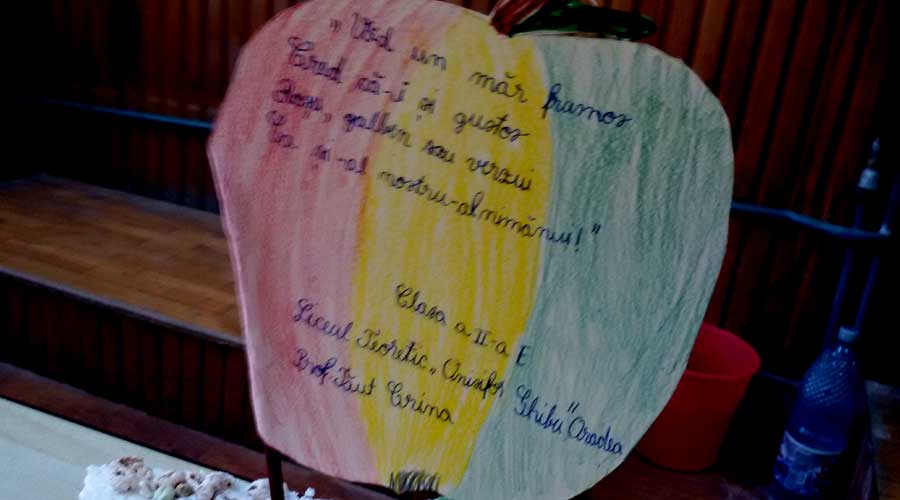 „Văd un măr frumos
Cred că-i și gustos
Roșu, galben sau verzui
Ca și-al nostru-al nimănui!"
Clasa a II-a E
Liceul Teoretic „Onisifor Ghibu" Oradea
Prof. Tăut Crina